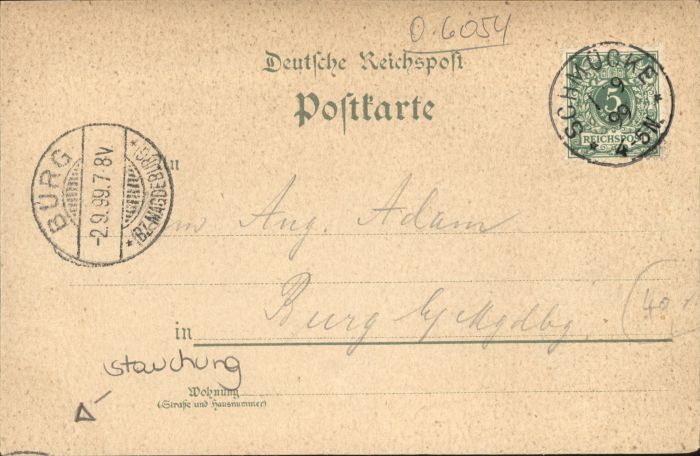 O. 6054
Deutsche Reichspost
Postkarte
SCHMÜCKE
1 9
99
4-5N
5
REICHSPOST
BURG
-2.9.99.7-8V
*(BZ.MAGDEBURG)*
An
Aug. Adam
in Burg b/Mgdbg.
(40
Stauchung
Wohnung
(Straße und Hausnummer)